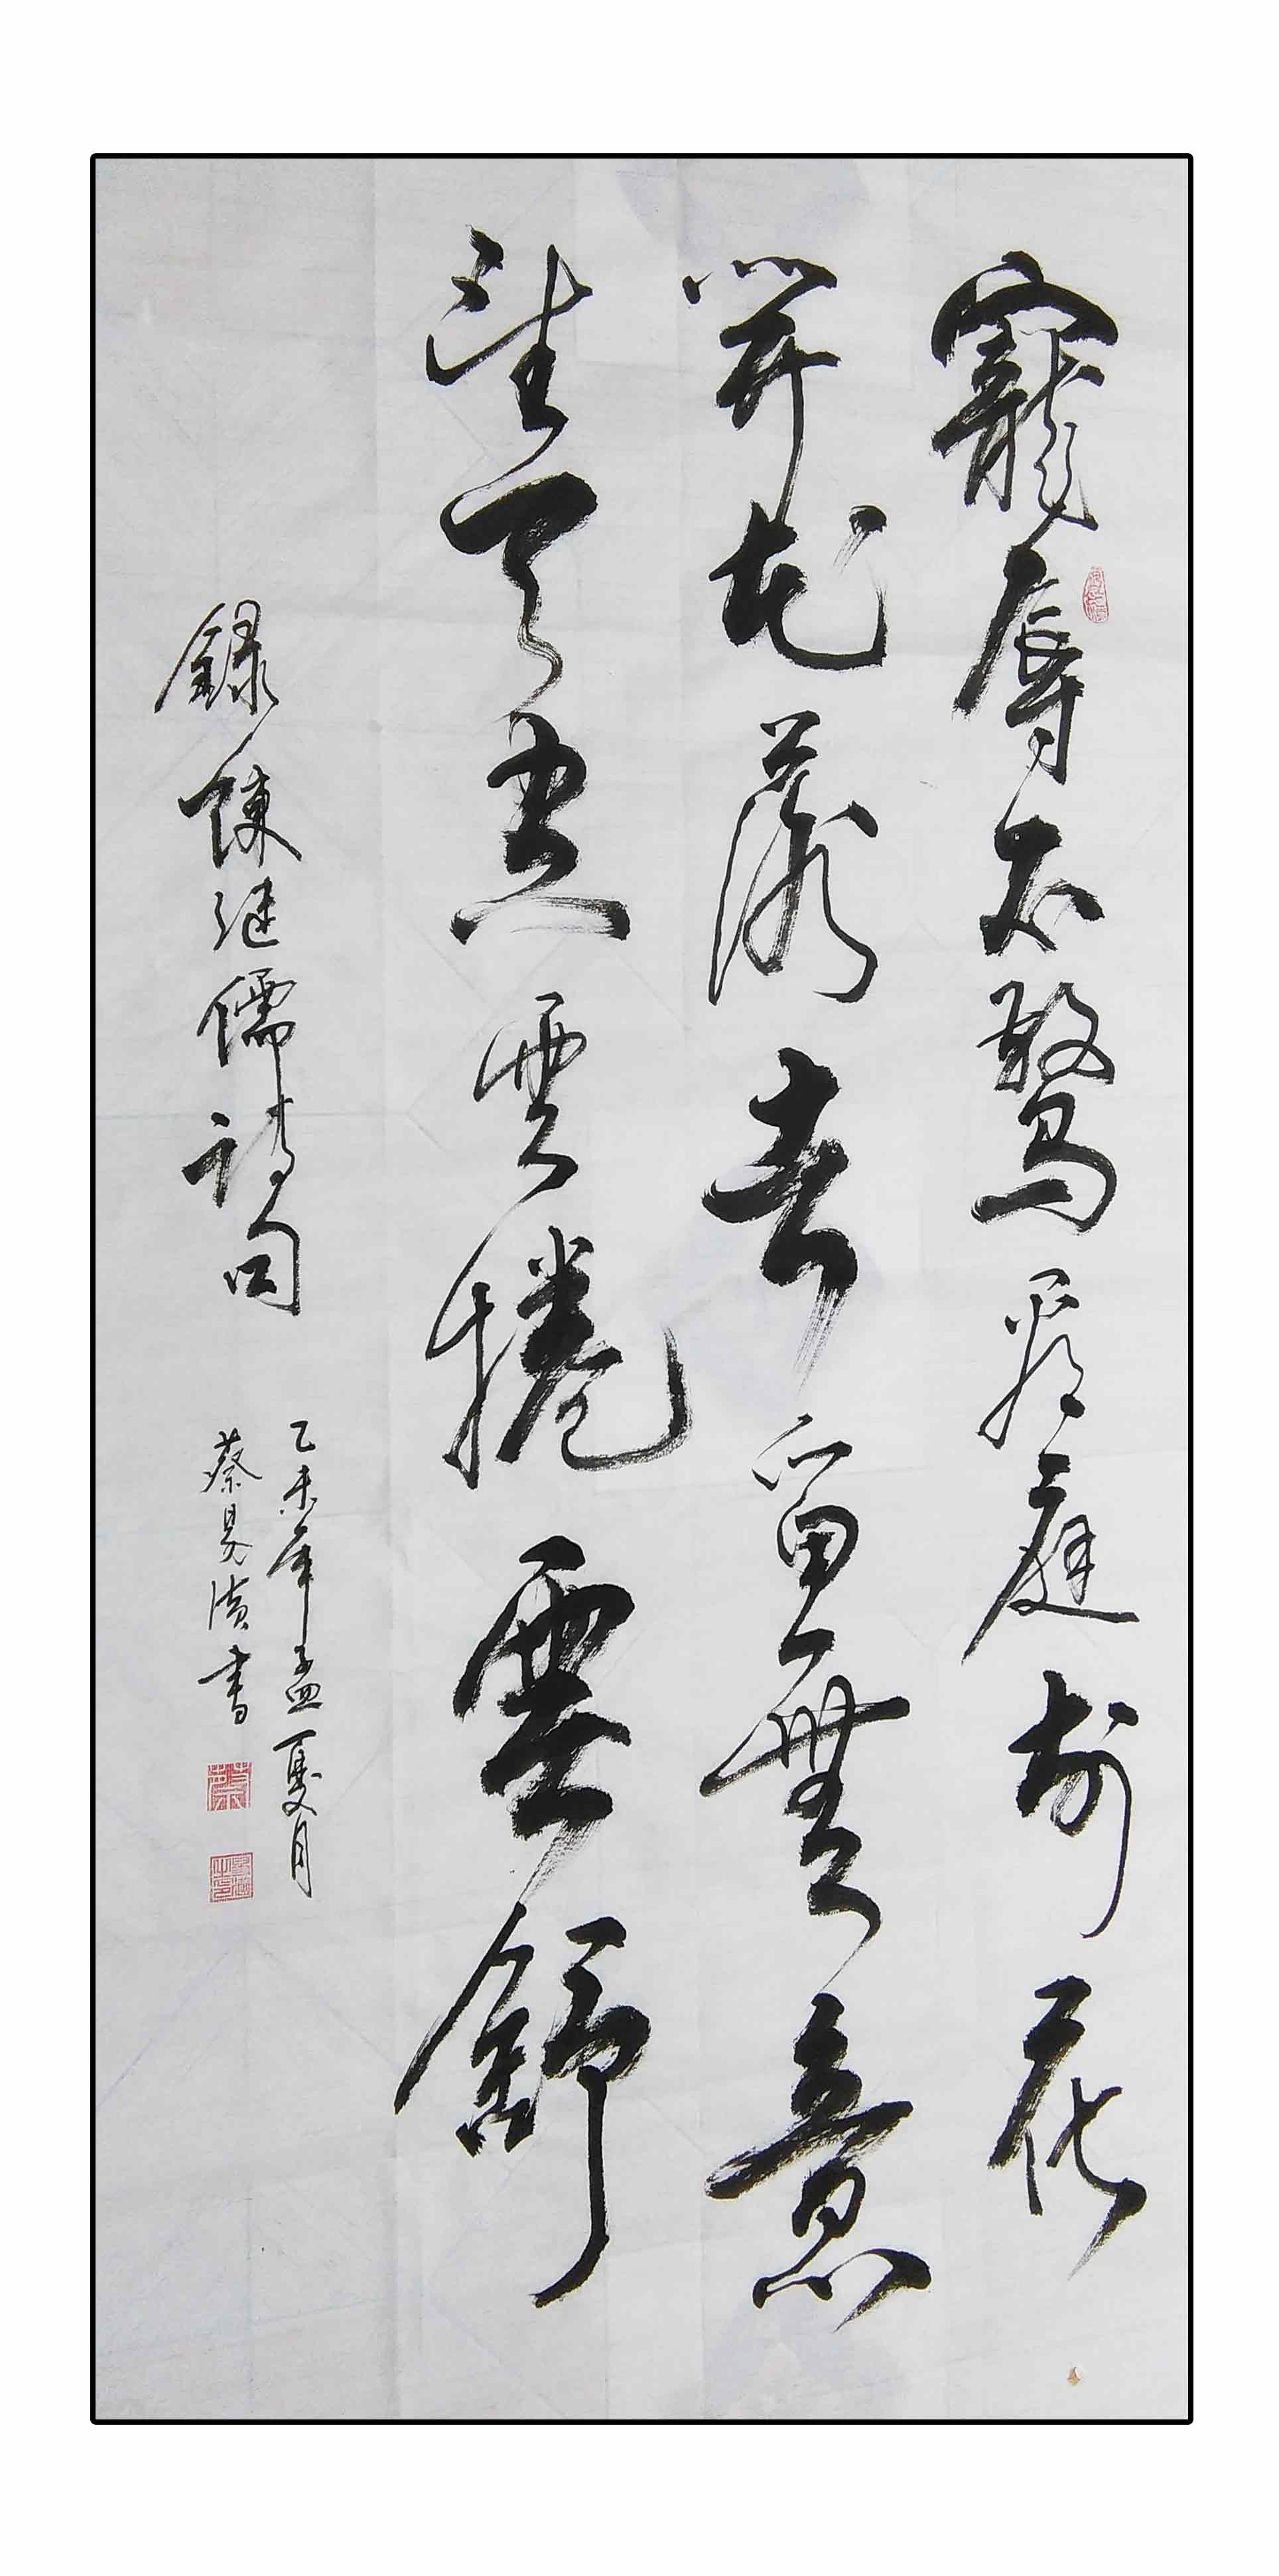 寵辱不驚看庭前花
開花落去留無意
望天空雲捲雲舒
錄陳继儒詩句
乙未年孟夏月
蔡書